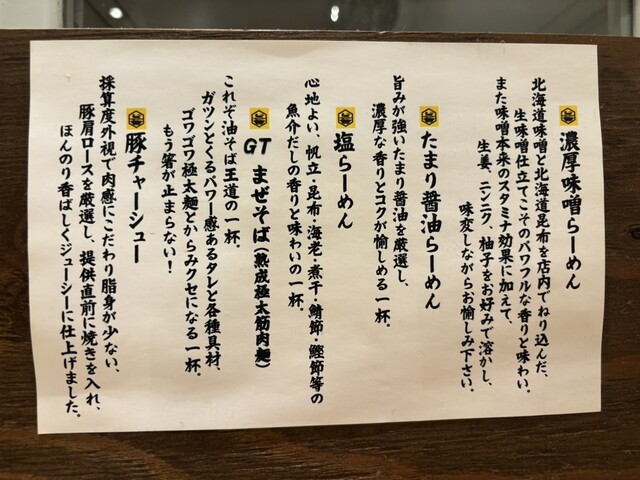 濃厚味噌らーめん
北海道味噌と北海道昆布を店内でねり込んだ、
生味噌仕立てこそのパワフルな香りと味わい。
また味噌本来のスタミナ効果に加えて、
生姜、ニンニク、柚子をお好みで溶かし、
味変しながらお愉しみ下さい。
たまり醤油らーめん
旨みが強いたまり醤油を厳選し、
濃厚な香りとコクが愉しめる一杯。
塩らーめん
心地よい、帆立・昆布・海老・煮干・鯖節・鰹節等の
魚介だしの香りと味わいの一杯。
GT まぜそば（熟成極太筋肉麺）
これぞ油そば王道の一杯。
ガツンとくるパワー感あるタレと各種具材、
ゴワゴワ極太麺とからみクセになる一杯。
もう箸が止まらない！
豚チャーシュー
採算度外視で肉感にこだわり脂身が少ない、
豚肩ロースを厳選し、提供直前に焼きを入れ、
ほんのり香ばしくジューシーに仕上げました。